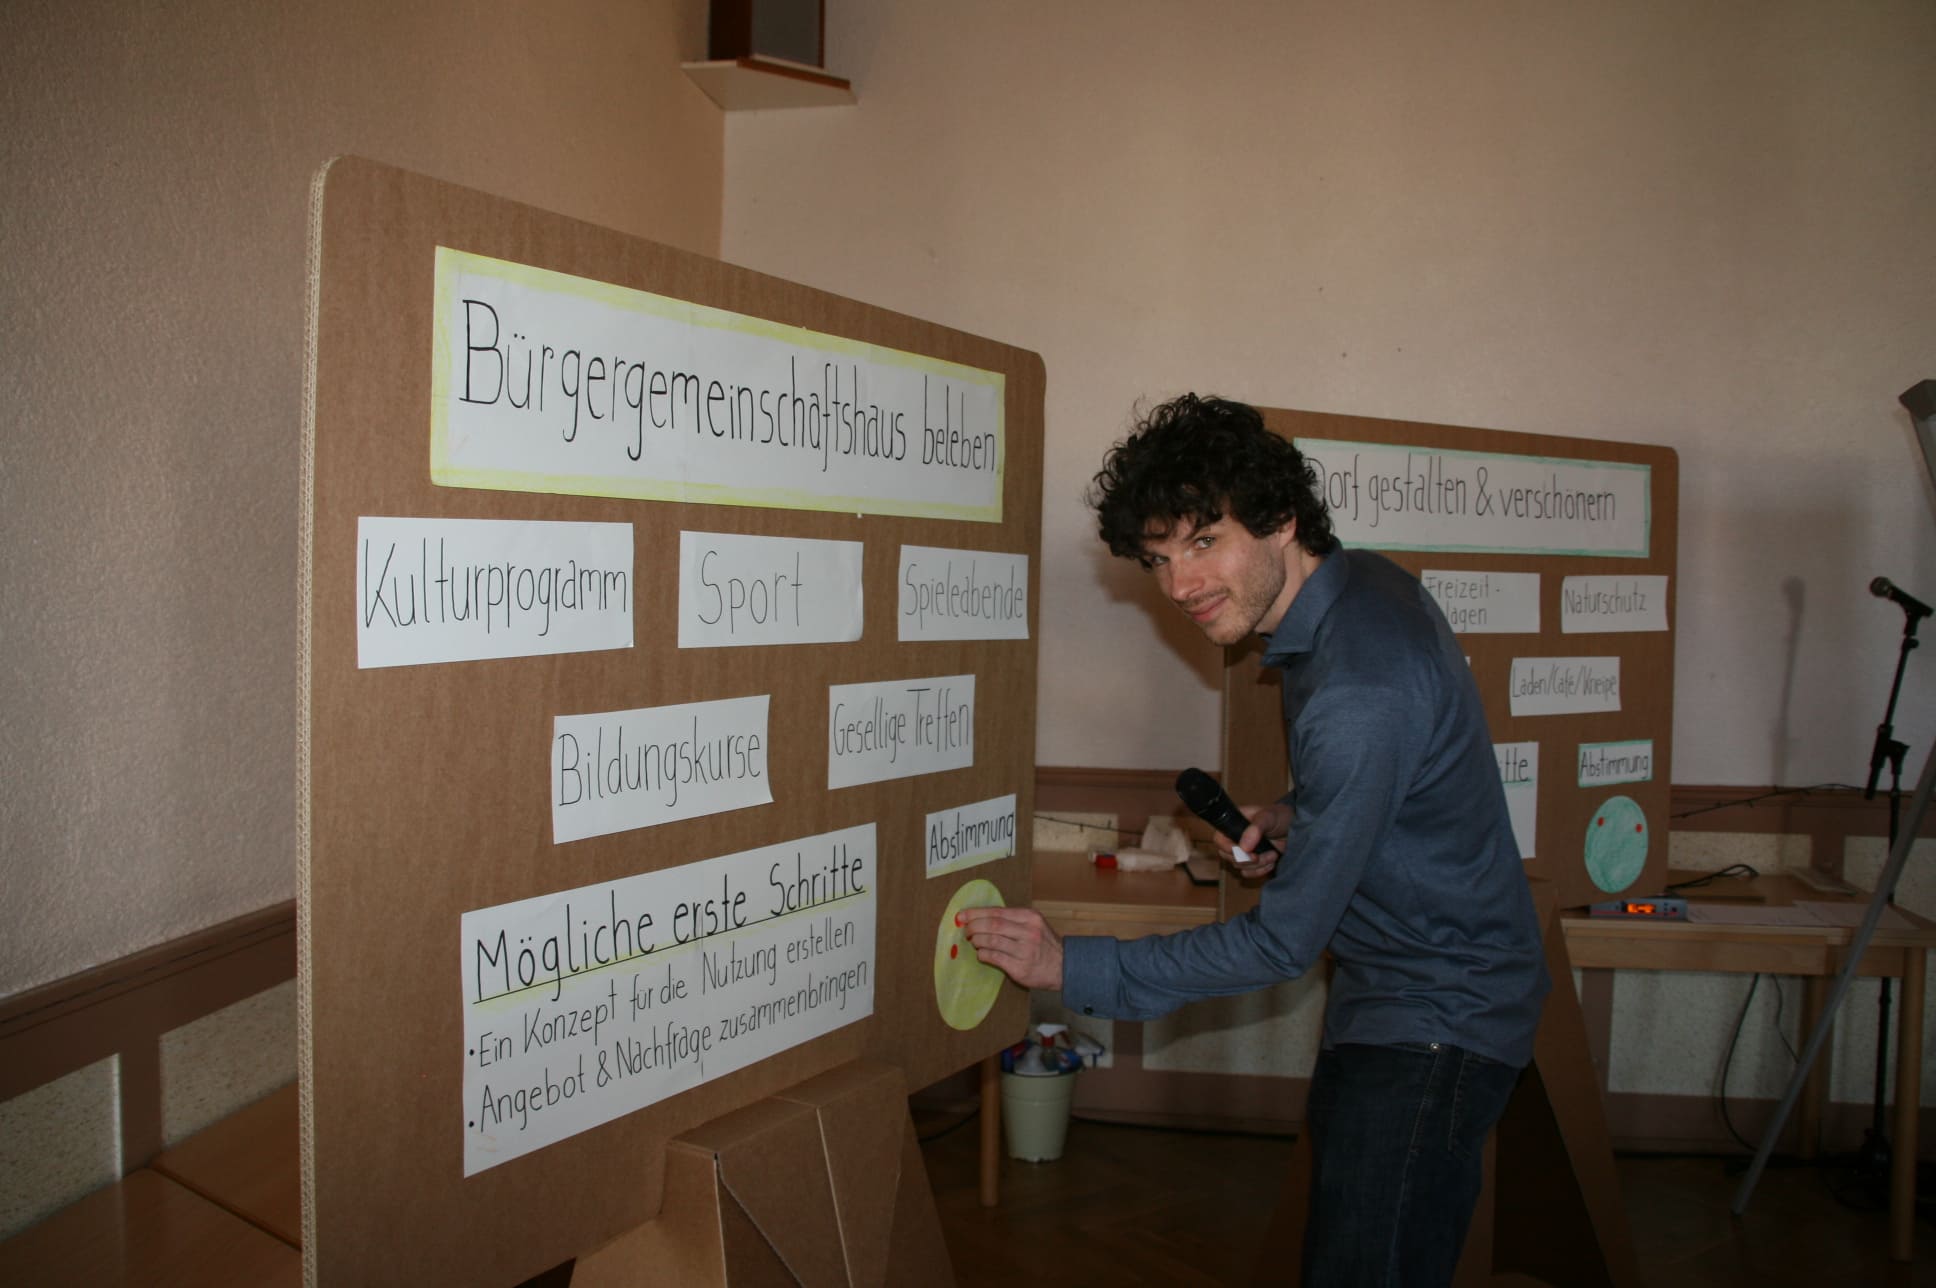 Bürgergemeinschaftshaus beleben
Kulturprogramm
Sport
Spieleabende
Bildungskurse
Gesellige Treffen
Abstimmung
Mögliche erste Schritte
• Ein Konzept für die Nutzung erstellen
• Angebot & Nachfrage zusammenbringen
Dorf gestalten & verschönern
Freizeit-
lagen
Naturschutz
Laden/Café/Kneipe
tte
Abstimmung